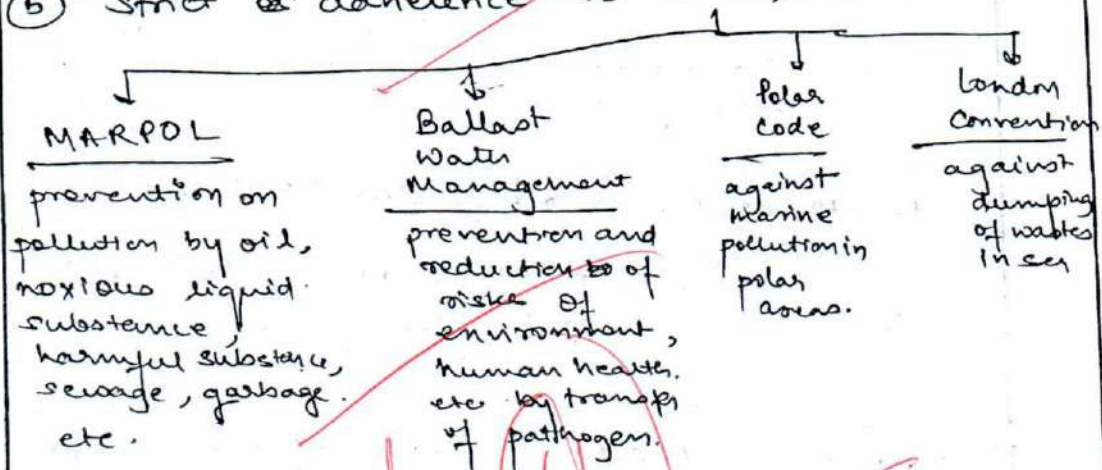 (b) Strict adherence
MARPOL
prevention on
pollution by oil,
noxious liquid
substance,
harmful substance,
sewage, garbage.
etc.
Ballast
Water
Management
prevention and
reduction of
risks of
environment,
human health.
etc by transfer
of pathogen.
Polar
Code
against
marine
pollution in
polar
areas.
London
Convention
against
dumping
of wastes
in sea